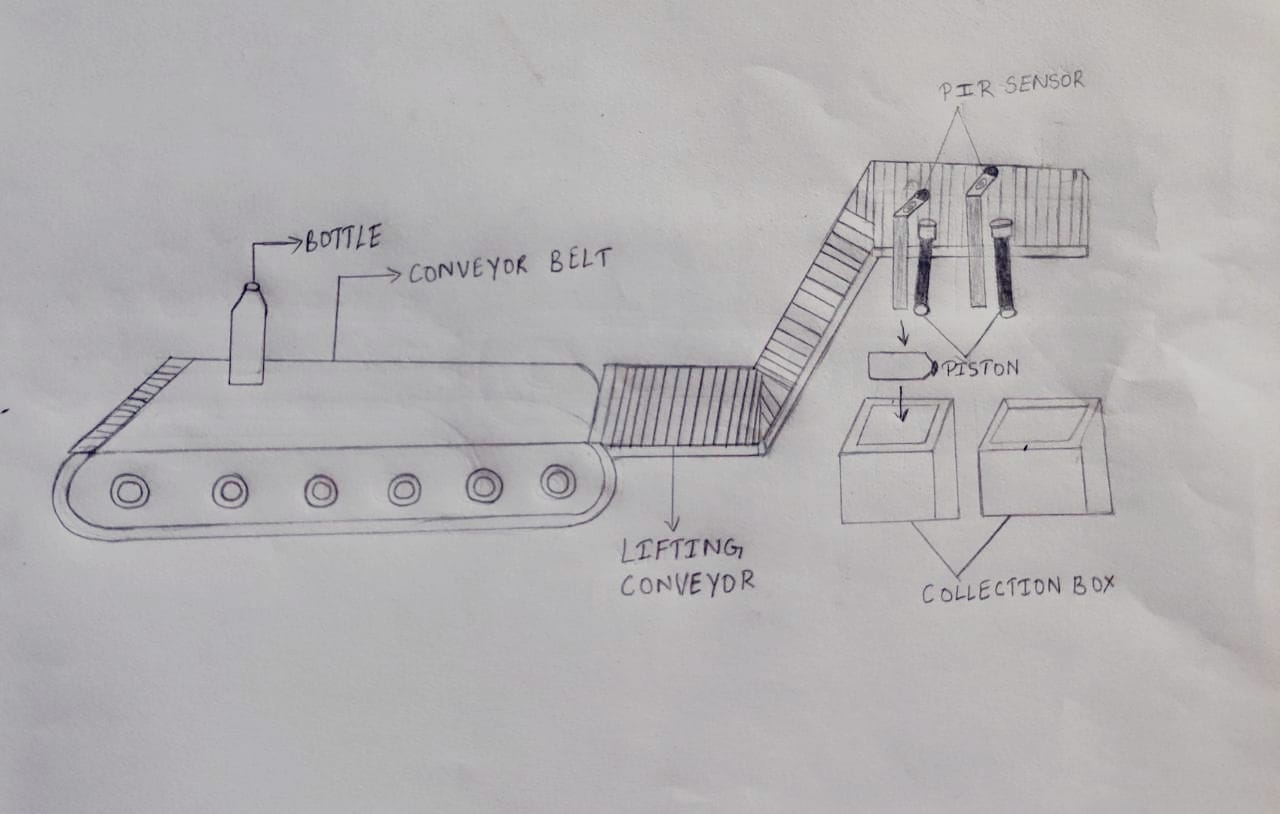 PIR SENSOR
BOTTLE
CONVEYOR BELT
PISTON
LIFTING
CONVEYOR
COLLECTION BOX